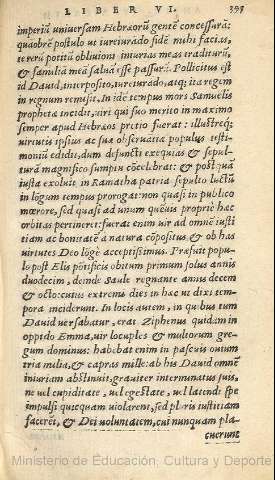 LIBER VI. 395
imperiũ universam Hebræorũ gentẽ concessurã:
quaobrẽ postulo ut iureiurado fidẽ mihi facias,
te rerũ potitũ oblivioni iniurias meas traditurũ,
& familiã meã salvã esse passurũ. Pollicitus est
id David, interposito iureiurado, atq; ita regem
in regnum remisit. In idẽ tempus mors Samuelis
prophetæ incidit, viri qui suo merito in maximo
semper apud Hebræos pretio fuerat: illustreq;
virtutis ipsius ac suæ observatiæ populus testi-
monium edidit, dum defuncti exequias & sepul-
turã magnifico sumptu cõcelebrat: & postquã
iusta exoluit in Ramatha patria sepulto luctũ
in lõgum tempus prorogat: non quasi in publico
mœrore, sed quasi ad unum quẽuis propriè hæc
orbitas pertineret: fuerat enim vir ad omnẽ iusti
tiam ac bonitatẽ à natura cõpositus & ob has
virtutes Deo lõgè acceptissimus. Præfuit popu-
lo post Elis põtificis obitum primum solus annis
duodecim, deinde Saule regnante annis decem
& octo: cuius extremi dies in hæc ut dixi tem-
pora inciderunt. In locis autem, in quibus tum
David versabatur, erat Ziphenus quidam in
oppido Emma, vir locuples & multorum gre-
gum dominus: habebat enim in pascuis ovium
tria milia, & capras mille: ab his David omnẽ
iniuriam abstinuit, graviter interminatus suis,
ne vel cupiditate, vel egestate, vel latendi spe
impulsi quicquam violarent, sed pluris iustitiam
facerẽt, & Dei voluntatem, cui nunquam pla-
cuerunt
Ministerio de Educación, Cultura y Deporte